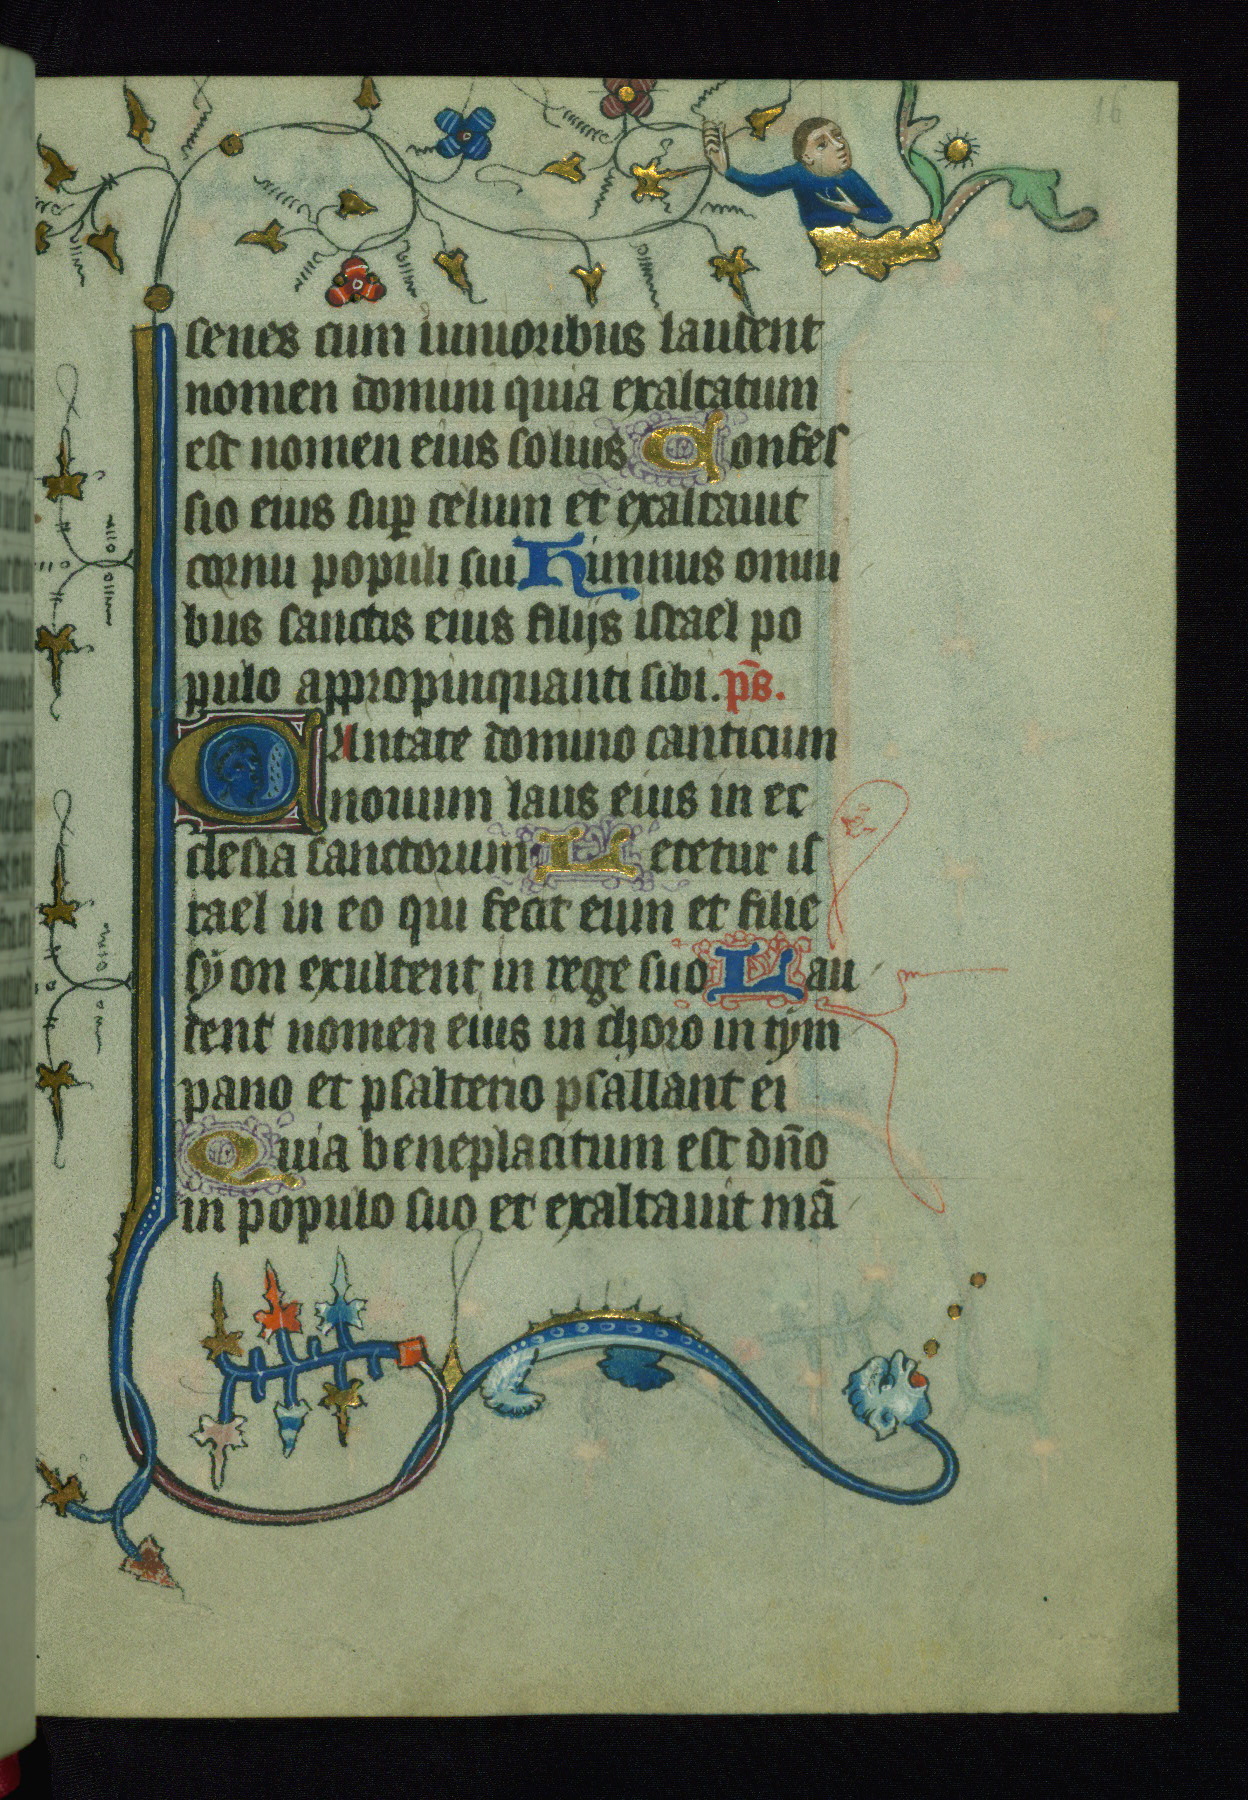 16
senes cum iunioribus laudent
nomen domini quia exaltatum
est nomen eius solius Confes
sio eius sup celum et exaltauit
cornu populi sui Himnus omni
bus sanctis eius filijs israel po
pulo appropinquanti sibi. p̄s.
CAntate domino canticum
nouum laus eius in ec
clesia sanctorum Letetur is
rael in eo qui fecit eum et filie
syon exultent in rege suo Lau
dent nomen eius in choro in tym
pano et psalterio psallant ei
Quia beneplacitum est dn̄o
in populo suo et exaltauit mā